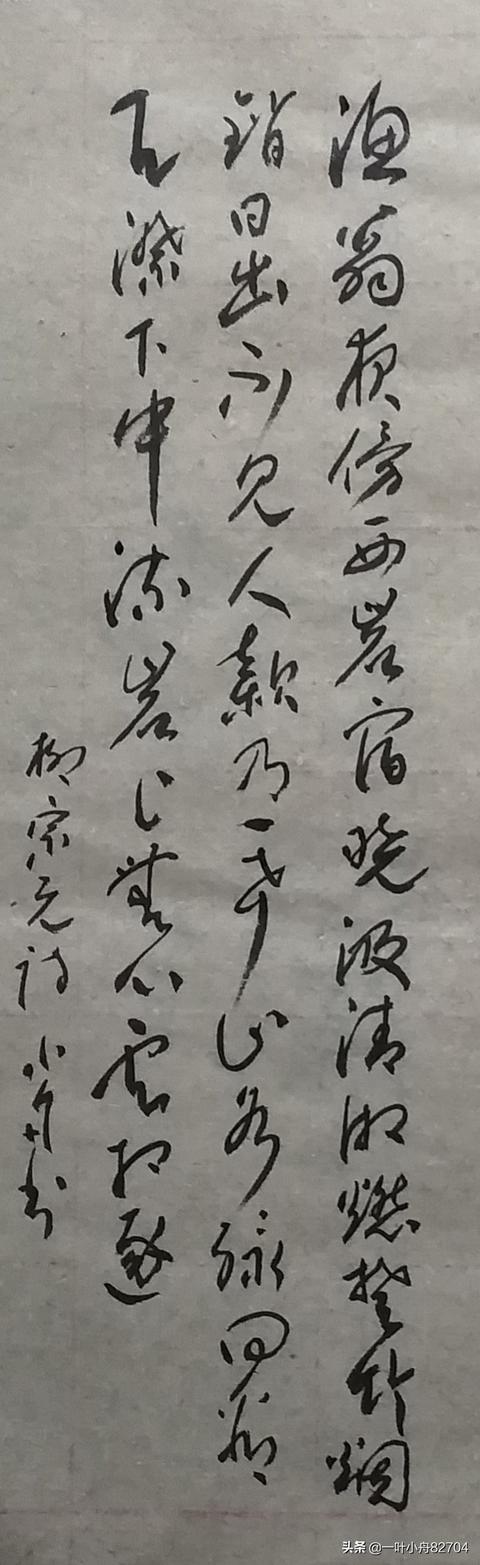 渔翁夜傍西岩宿晓汲清湘燃楚竹烟
销日出不见人欸乃一声山水绿回看
天际下中流岩上無心雲相逐
柳宗元诗 小舟书
头条 @一叶小舟82704